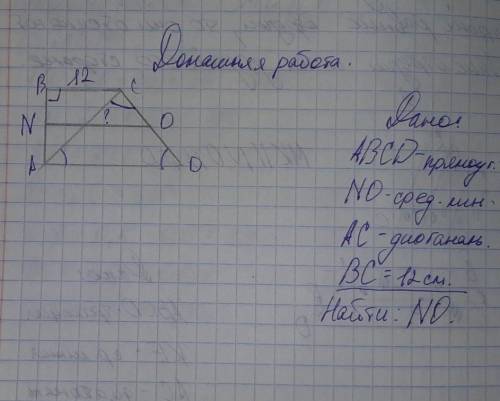 Домашняя работа.
B 12 C
N ? O
A D
Дано:
ABCD-прямоуг.
NO-сред. лин.
AC-диогональ.
BC=12см.
Найти: NO.